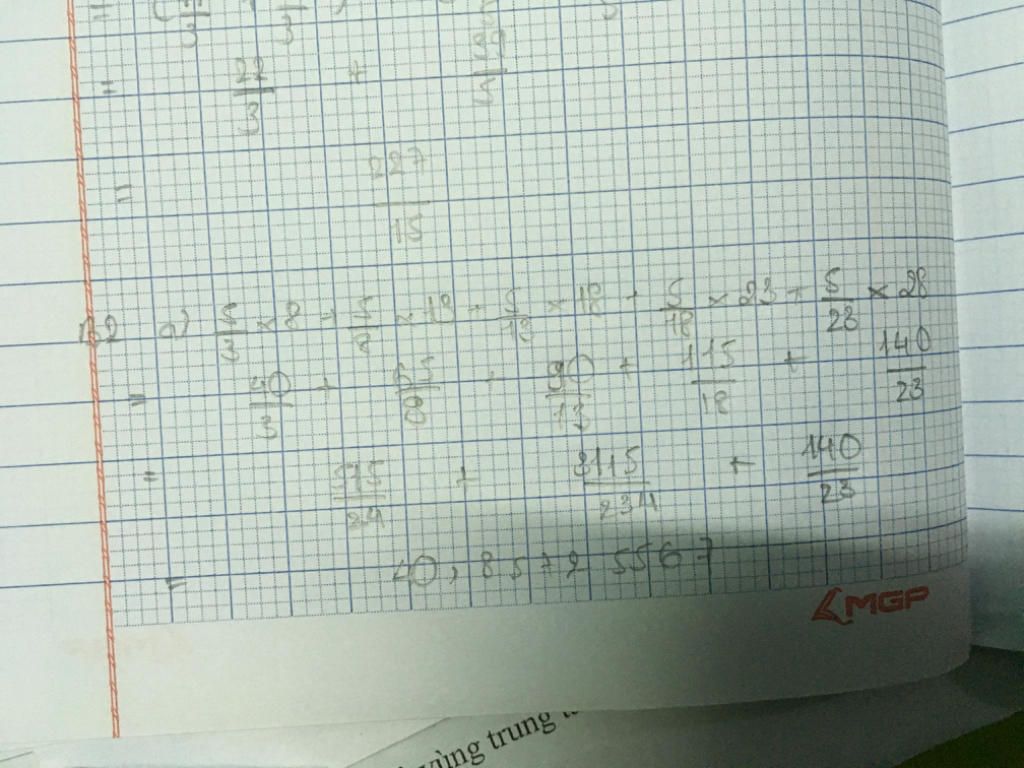 = 22/3 +
= 227/15
a) 5/3 × 8 + 5/8 × 13 + 5/13 × 18 + 5/18 × 23 + 5/23 × 28
= 40/3 + 65/8 + 90/13 + 115/18 + 140/23
= 515/24 + 3115/234 + 140/23
= 40,85725567
MGP
vùng trung